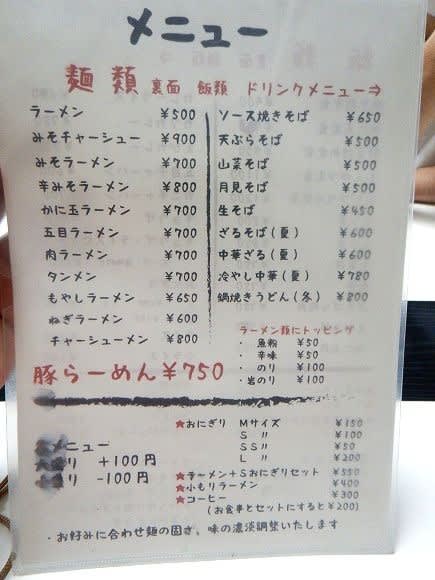 メニュー
麺類 裏面 飯類 ドリンクメニュー⇒
ラーメン ¥500
みそチャーシュー ¥900
みそラーメン ¥700
辛みそラーメン ¥800
かに玉ラーメン ¥700
五目ラーメン ¥700
肉ラーメン ¥700
タンメン ¥700
もやしラーメン ¥650
ねぎラーメン ¥600
チャーシューメン ¥800
豚らーめん¥750
ソース焼きそば ¥650
天ぷらそば ¥500
山菜そば ¥500
月見そば ¥500
生そば ¥450
ざるそば(夏) ¥600
中華ざる(夏) ¥600
冷やし中華(夏) ¥780
鍋焼きうどん(冬) ¥800
ラーメン類にトッピング
・ 魚粉 ¥50
・ 辛味 ¥50
・ のり ¥100
・ 岩のり ¥100
メニュー
り +100円
り -100円
★おにぎり Mサイズ ¥150
S 〃 ¥100
SS〃 ¥50
L 〃 ¥200
★ラーメン+Sおにぎりセット ¥550
★小もりラーメン ¥400
★コーヒー ¥300
(お食事とセットにすると¥200)
・お好みに合わせ麺の固さ、味の濃淡調整いたします